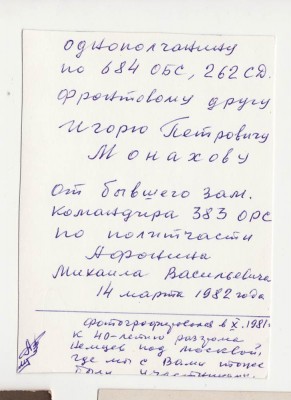 однополчанину
по 684 ОБС, 262 СД.
фронтовому другу
Игорю Петровичу
Монахову
от бывшего зам.
командира 383 ОРС
по политчасти
Афонина
Михаила Васильевича
14 марта 1982 года
фотографировался в X.1981г
к 40-летию разгрома
немцев под Москвой,
где мы с Вами тоже
были участниками.